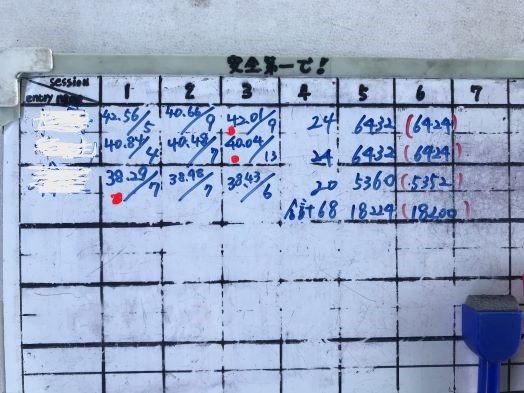 安全第一で!
session
entry name
1 2 3 4 5 6 7
42.56/5 40.66/9 42.01/9 24 6432 (6424)
40.84/4 40.48/7 40.04/13 24 6432 (6424)
38.29/7 38.98/7 38.43/6 20 5360 (5352)
合計68 18224 (18200)